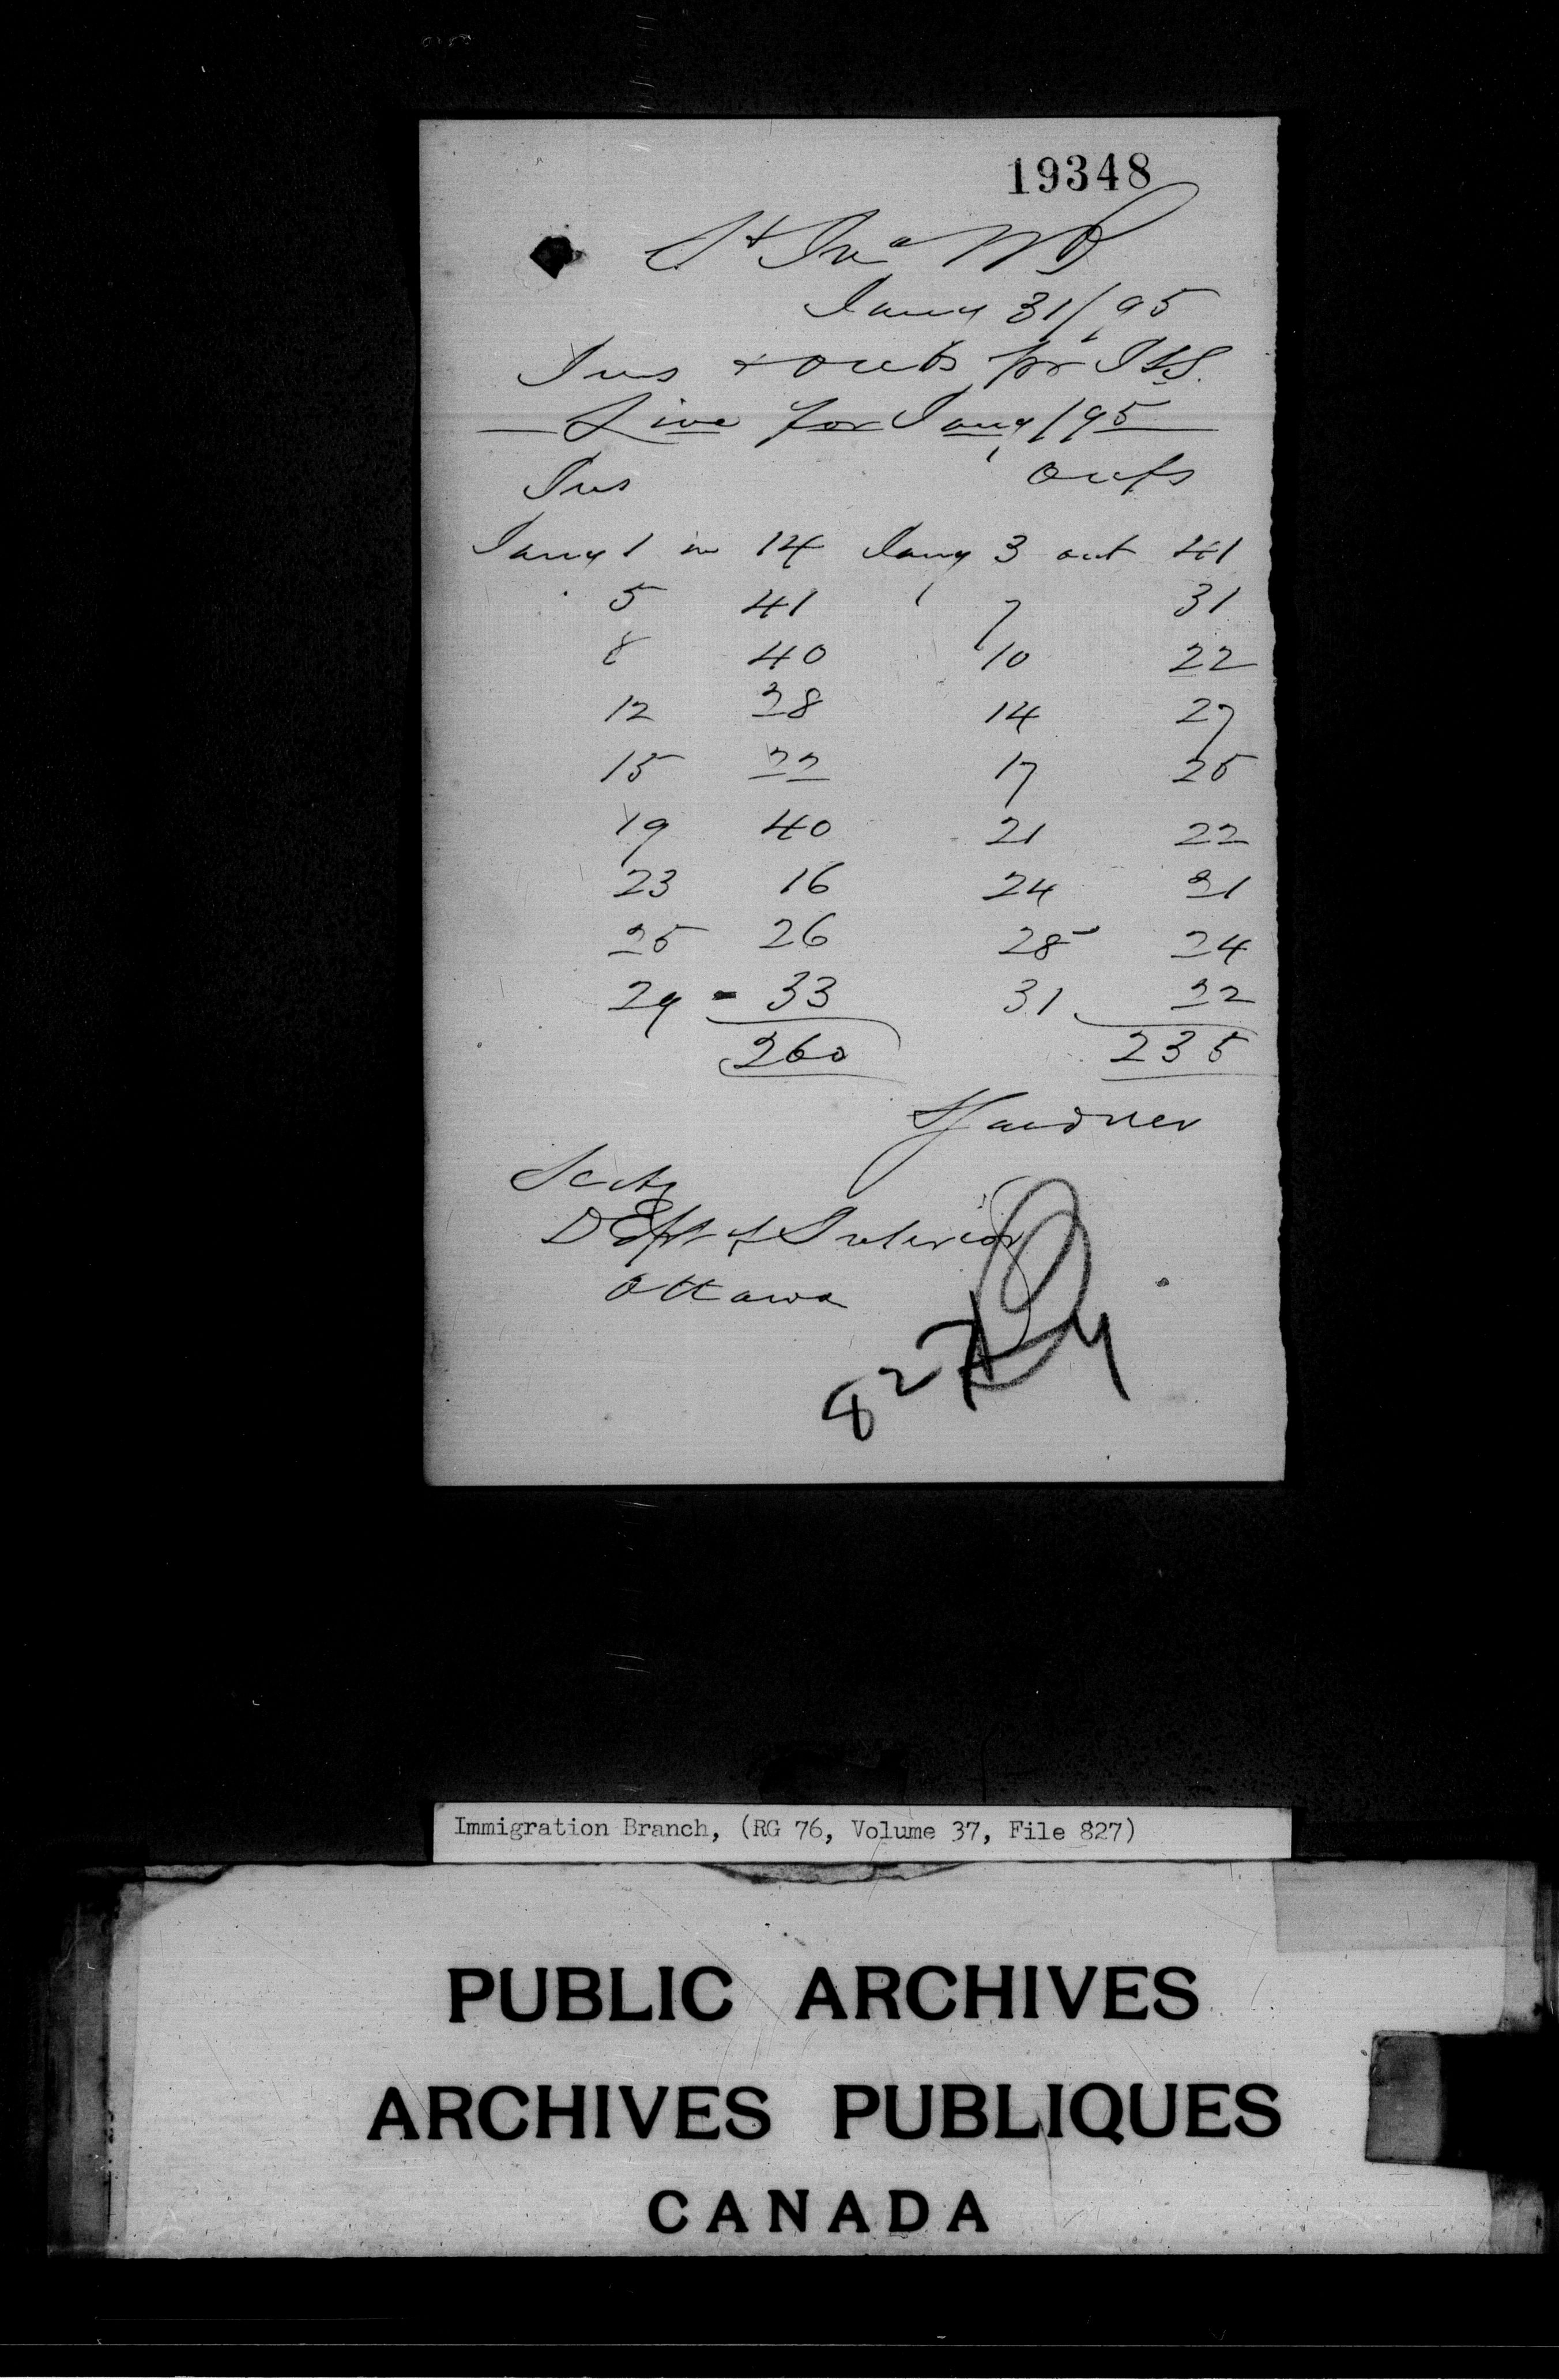 19348
St Jno NB
Jany 31/95
Ins + outs pr ISS.
Line for Jany/95
Ins outs
Jany 1 in 14 Jany 3 out 41
5 41 7 31
8 40 10 22
12 28 14 27
15 22 17 25
19 40 21 22
23 16 24 21
25 26 28 24
29 - 33 31 22
260 235
S Gardner
Secty
Dept of Interior
Ottawa
827
Immigration Branch, (RG 76, Volume 37, File 827)
PUBLIC ARCHIVES
ARCHIVES PUBLIQUES
CANADA